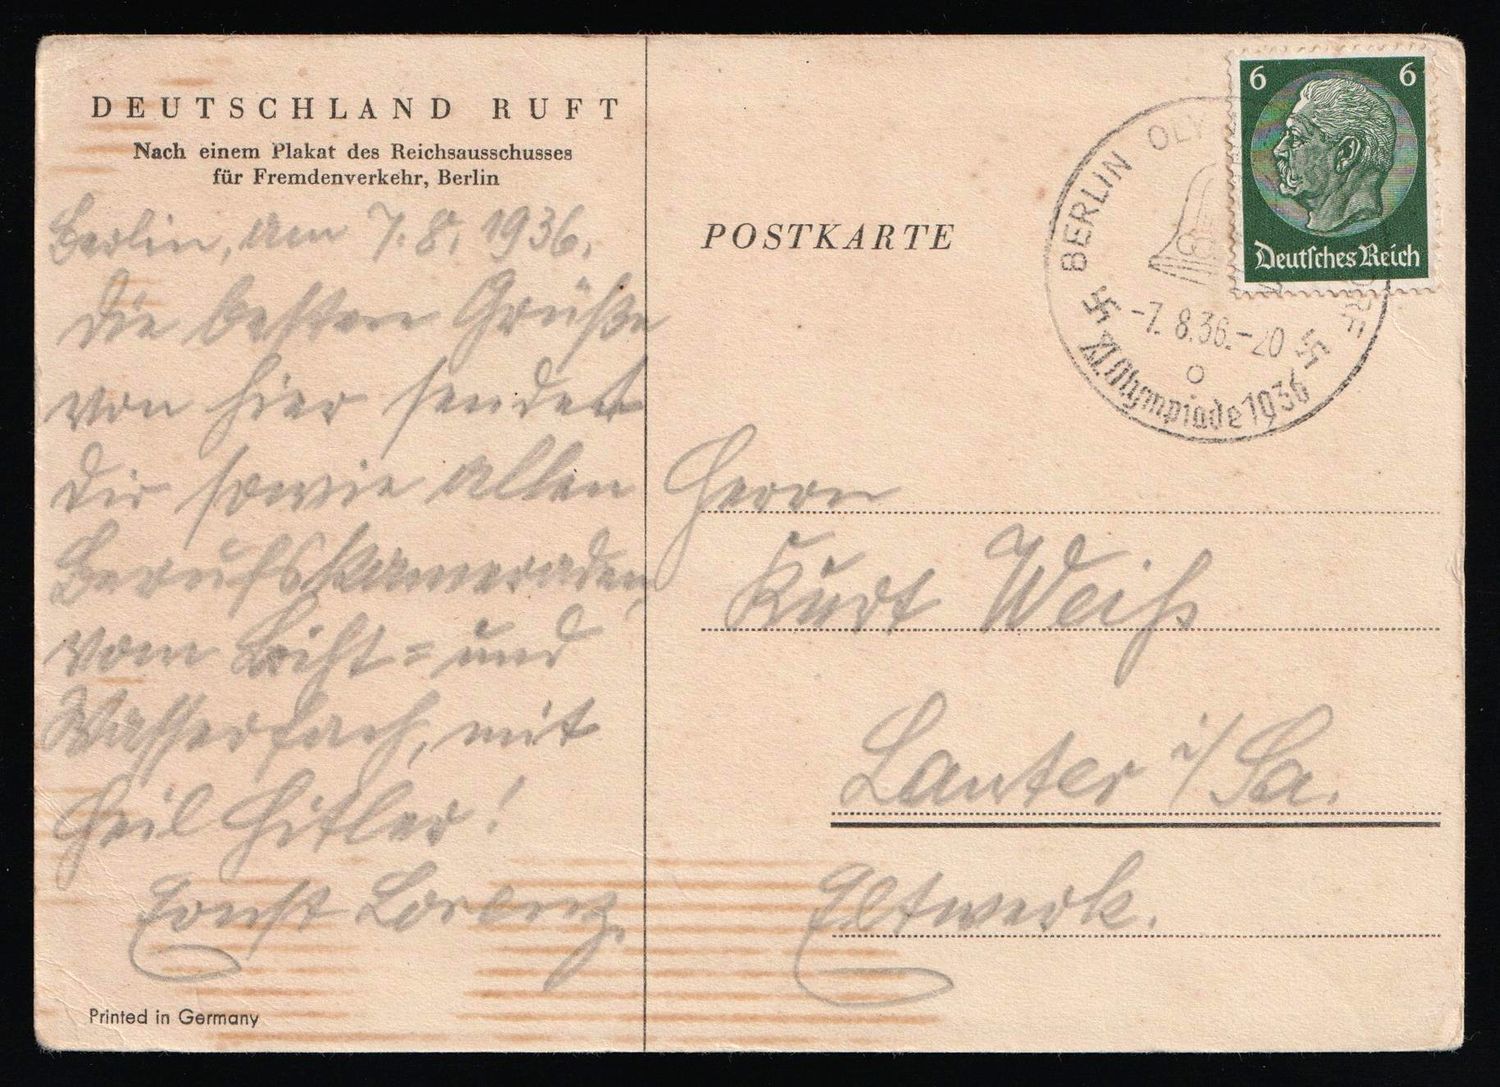 DEUTSCHLAND RUFT
Nach einem Plakat des Reichsausschusses
für Fremdenverkehr, Berlin
Berlin, am 7.8.1936.
Die besten Grüße
von hier sendet
Dir sowie allen
Berufskameraden,
vom Licht= und
Wasserfach, mit
Heil Hitler!
Ernst Lorenz.
Printed in Germany
POSTKARTE
6 6
Deutsches Reich
BERLIN OLY
ORF
-7.8.36.-20
XI. Olympiade 1936
Herrn
Kurt Weiß
Lauter i/Sa.
Eltwerk.